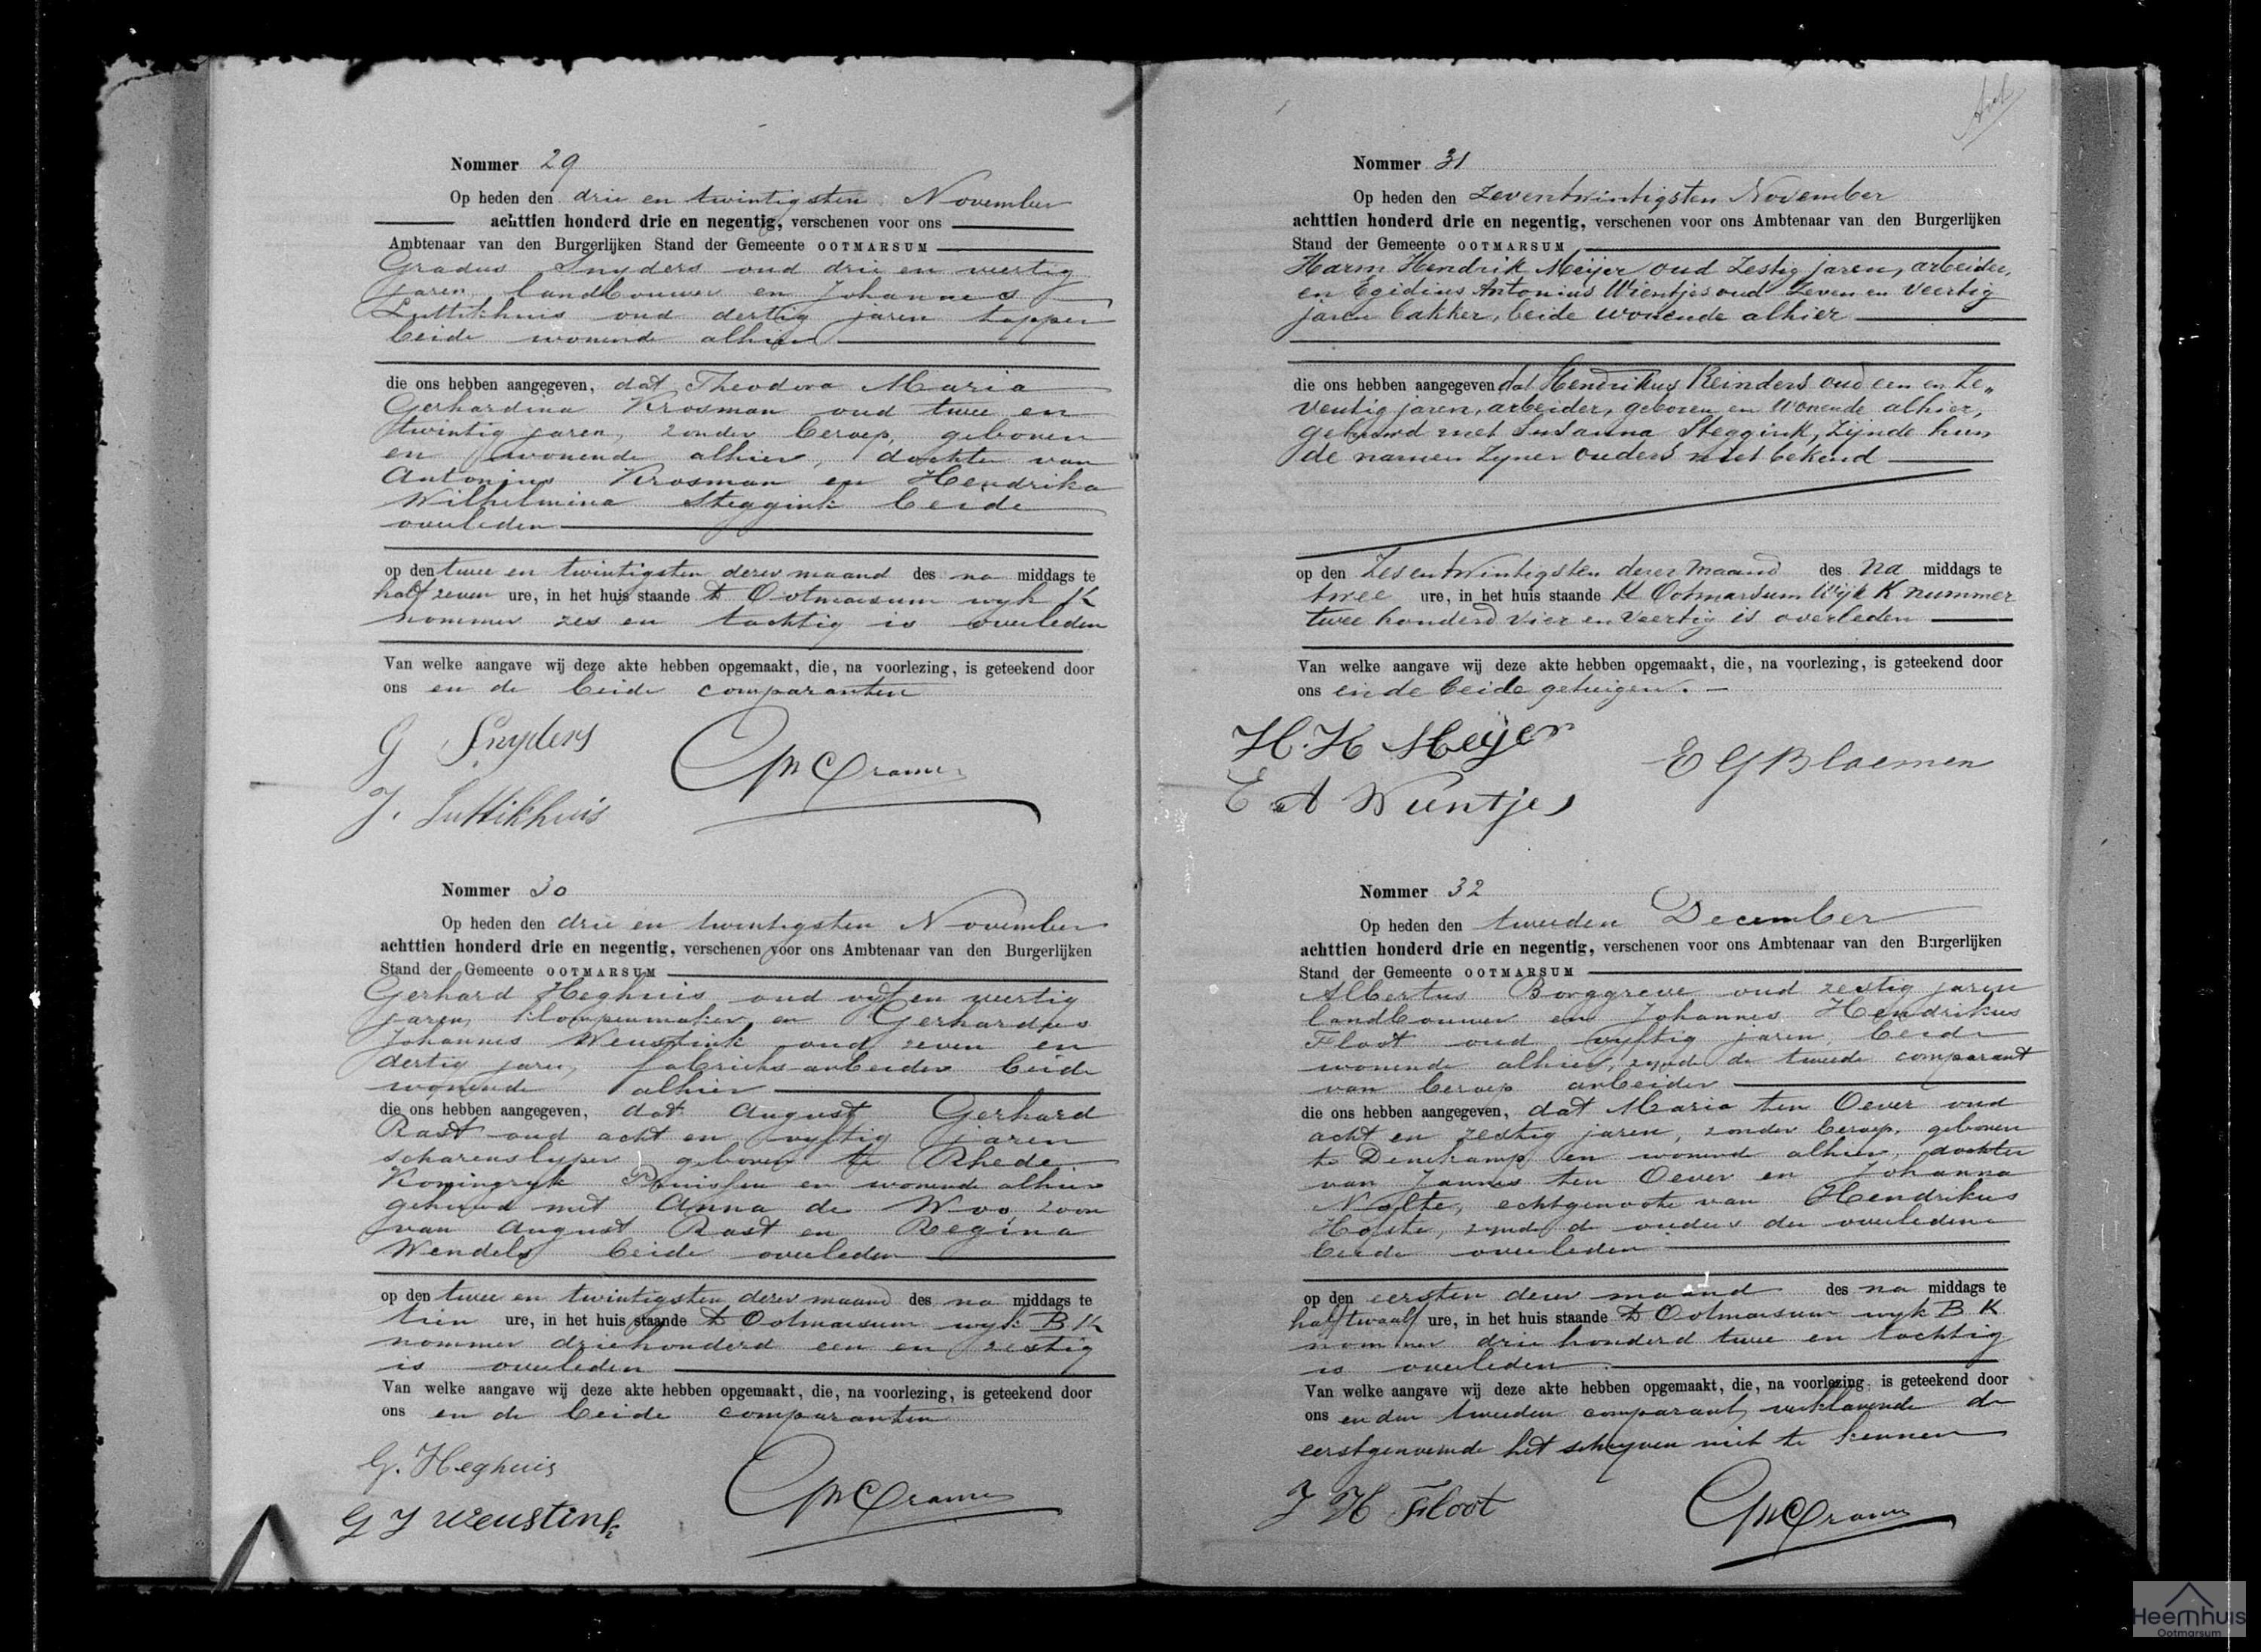 Nommer 29
Op heden den drie en twintigsten November
achttien honderd drie en negentig, verschenen voor ons
Ambtenaar van den Burgerlijken Stand der Gemeente OOTMARSUM
Gradus Snyders oud drie en veertig
jaren, landbouwer en Johannes
Luttikhuis oud dertig jaren tapper
beide wonende alhier
die ons hebben aangegeven, dat Theodora Maria
Gerhardina Krosman oud twee en
twintig jaren, zonder beroep, geboren
en wonende alhier, dochter van
Antonius Krosman en Hendrika
Wilhelmina Steggink beide
overleden
op den twee en twintigsten dezer maand des na middags te
half zeven ure, in het huis staande te Ootmarsum wyk K
nommer zes en tachtig is overleden
Van welke aangave wij deze akte hebben opgemaakt, die, na voorlezing, is geteekend door
ons en de beide comparanten
G Snyders
J. Luttikhuis
Cramer
Nommer 30
Op heden den drie en twintigsten November
achttien honderd drie en negentig, verschenen voor ons Ambtenaar van den Burgerlijken
Stand der Gemeente OOTMARSUM
Gerhard Heghuis oud vyf en veertig
jaren, klompenmaker en Gerhardus
Johannes Weustink oud zeven en
dertig jaren, fabrieks-arbeider beide
wonende alhier
die ons hebben aangegeven, dat August Gerhard
Rast oud acht en vyftig jaren
scharenslyper geboren te Rhede
Koningryk Pruissen en wonende alhier
gehuwd met Anna de Woo, zoon
van August Rast en Regina
Wendels beide overleden
op den twee en twintigsten dezer maand des na middags te
tien ure, in het huis staande te Ootmarsum wyk B K
nommer driehonderd een en zestig
is overleden
Van welke aangave wij deze akte hebben opgemaakt, die, na voorlezing, is geteekend door
ons en de beide comparanten
G. Heghuis
G J Weustink
Cramer
Nommer 31
Op heden den zeventwintigsten November
achttien honderd drie en negentig, verschenen voor ons Ambtenaar van den Burgerlijken
Stand der Gemeente OOTMARSUM
Harm Hendrik Meijer oud Zestig jaren, arbeider,
en Egidius Antonius Wientjes oud Zeven en Veertig
jaren bakker, beide wonende alhier
die ons hebben aangegeven dat Hendrikus Reinders oud een en Ze„
ventig jaren, arbeider, geboren en wonende alhier,
gehuwd met Susanna Steggink, zijnde hun
de namen zyner ouders niet bekend
op den Zesentwintigsten dezer maand des na middags te
twee ure, in het huis staande te Ootmarsum Wijk K nummer
twee honderd vier en veertig is overleden
Van welke aangave wij deze akte hebben opgemaakt, die, na voorlezing, is geteekend door
ons en de beide getuigen.
H. H Meijer
E A Wientjes
E G Bloemen
Nommer 32
Op heden den tweeden December
achttien honderd drie en negentig, verschenen voor ons Ambtenaar van den Burgerlijken
Stand der Gemeente OOTMARSUM
Albertus Borggreve oud zestig jaren
landbouwer en Johannes Hendrikus
Floot oud vyftig jaren, beide
wonende alhier, zynde de tweede comparant
van beroep arbeider
die ons hebben aangegeven, dat Maria ten Oever oud
acht en zestig jaren, zonder beroep, geboren
te Denekamp en wonend alhier, dochter
van Jannes ten Oever en Johanna
Nolte, echtgenoote van Hendrikus
Hofste, zynde de ouders der overledene
beide overleden
op den eersten dezer maand des na middags te
half twaalf ure, in het huis staande te Ootmarsum wyk B K
nommer drie honderd twee en tachtig
is overleden
Van welke aangave wij deze akte hebben opgemaakt, die, na voorlezing, is geteekend door
ons en den tweeden comparant, verklarende de
eerstgenoemde het schryven niet te kennen
J H Floot
Cramer
Heemhuis
Ootmarsum